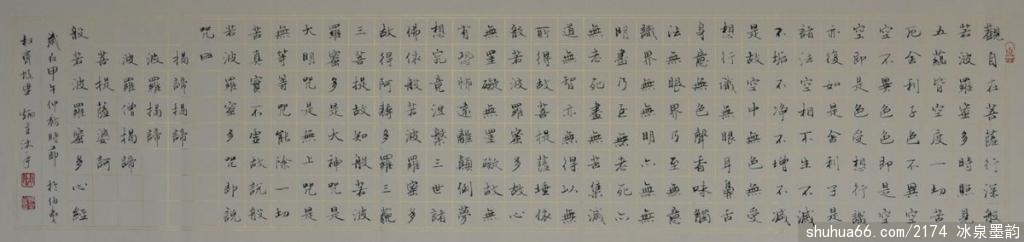 觀自在菩薩行深般
若波羅蜜多時照見
五蘊皆空度一切苦
厄舍利子色不異空
空不異色色即是空
空即是色受想行識
亦復如是舍利子是
諸法空相不生不滅
不垢不淨不增不減
是故空中無色無受
想行識無眼耳鼻舌
身意無色聲香味觸
法無眼界乃至無意
識界無無明亦無無
明盡乃至無老死亦
無老死盡無苦集滅
道無智亦無得以無
所得故菩提薩埵依
般若波羅蜜多故心
無罣礙無罣礙故無
有恐怖遠離顛倒夢
想究竟涅槃三世諸
佛依般若波羅蜜多
故得阿耨多羅三藐
三菩提故知般若波
羅蜜多是大神咒是
大明咒是無上咒是
無等等咒能除一切
苦真實不虛故說般
若波羅蜜多咒即說
咒曰
揭諦揭諦
波羅揭諦
波羅僧揭諦
菩提薩婆訶
般若波羅蜜多心經
歲在甲午仲秋時節於伯
shuhua66.com/2174 冰泉墨韵